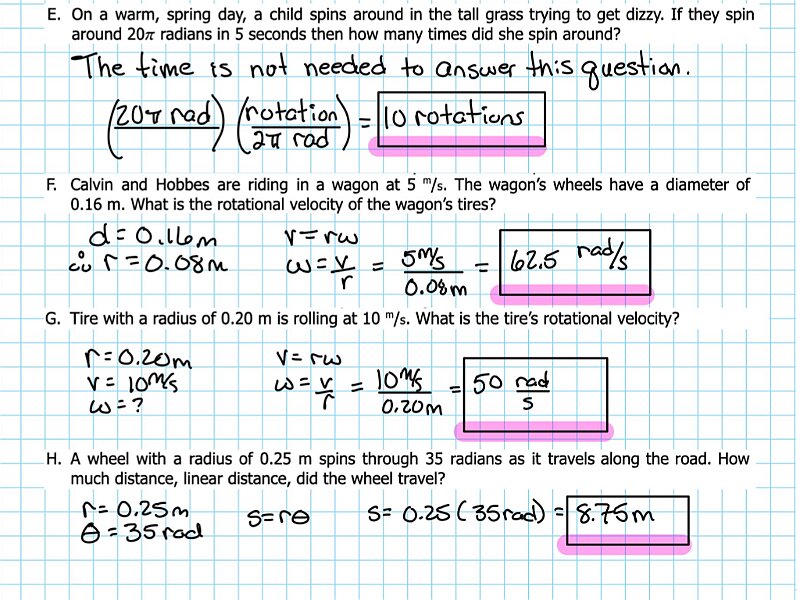 E. On a warm, spring day, a child spins around in the tall grass trying to get dizzy. If they spin
around 20π radians in 5 seconds then how many times did she spin around?
The time is not needed to answer this question.
(20π rad) (rotation / 2π rad) = 10 rotations
F. Calvin and Hobbes are riding in a wagon at 5 m/s. The wagon's wheels have a diameter of
0.16 m. What is the rotational velocity of the wagon's tires?
d = 0.16m
∴ r = 0.08m
v = rω
ω = v/r = 5 m/s / 0.08m = 62.5 rad/s
G. Tire with a radius of 0.20 m is rolling at 10 m/s. What is the tire's rotational velocity?
r = 0.20m
v = 10 m/s
ω = ?
v = rω
ω = v/r = 10 m/s / 0.20m = 50 rad/s
H. A wheel with a radius of 0.25 m spins through 35 radians as it travels along the road. How
much distance, linear distance, did the wheel travel?
r = 0.25m
θ = 35 rad
s = rθ
s = 0.25 (35 rad) = 8.75m